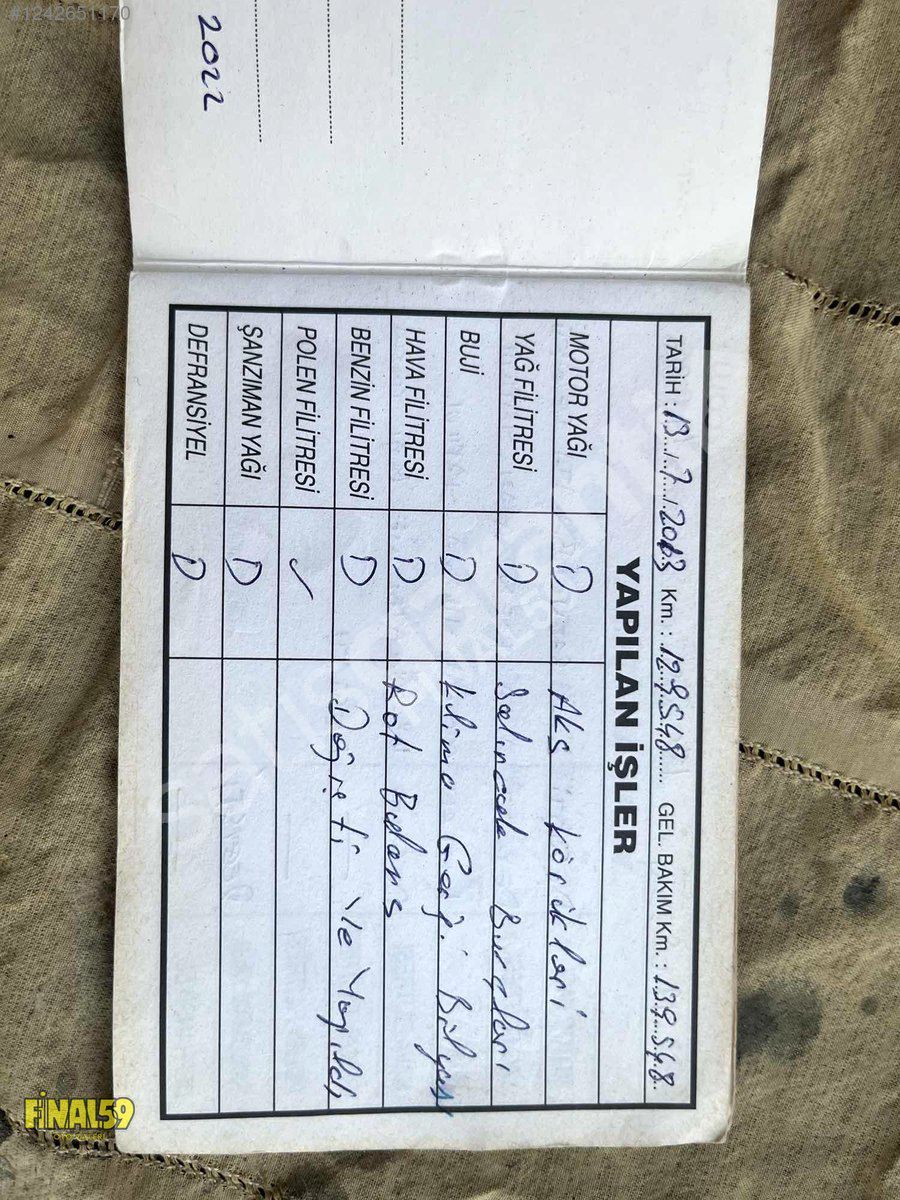 #1242651170
2022
TARİH : 13.../...7.../.2013 Km. : .12.9.548..... GEL. BAKIM Km. : .139.548..
YAPILAN İŞLER
MOTOR YAĞI D Aks körükleri
YAĞ FİLİTRESİ D Salıncak Burçları
BUJİ D Klima Gergi Bilyası
HAVA FİLİTRESİ D Rot Balans
BENZİN FİLİTRESİ D Değişti ve Yapıldı
POLEN FİLİTRESİ ✓
ŞANZIMAN YAĞI D
DEFRANSİYEL D
FİNAL59